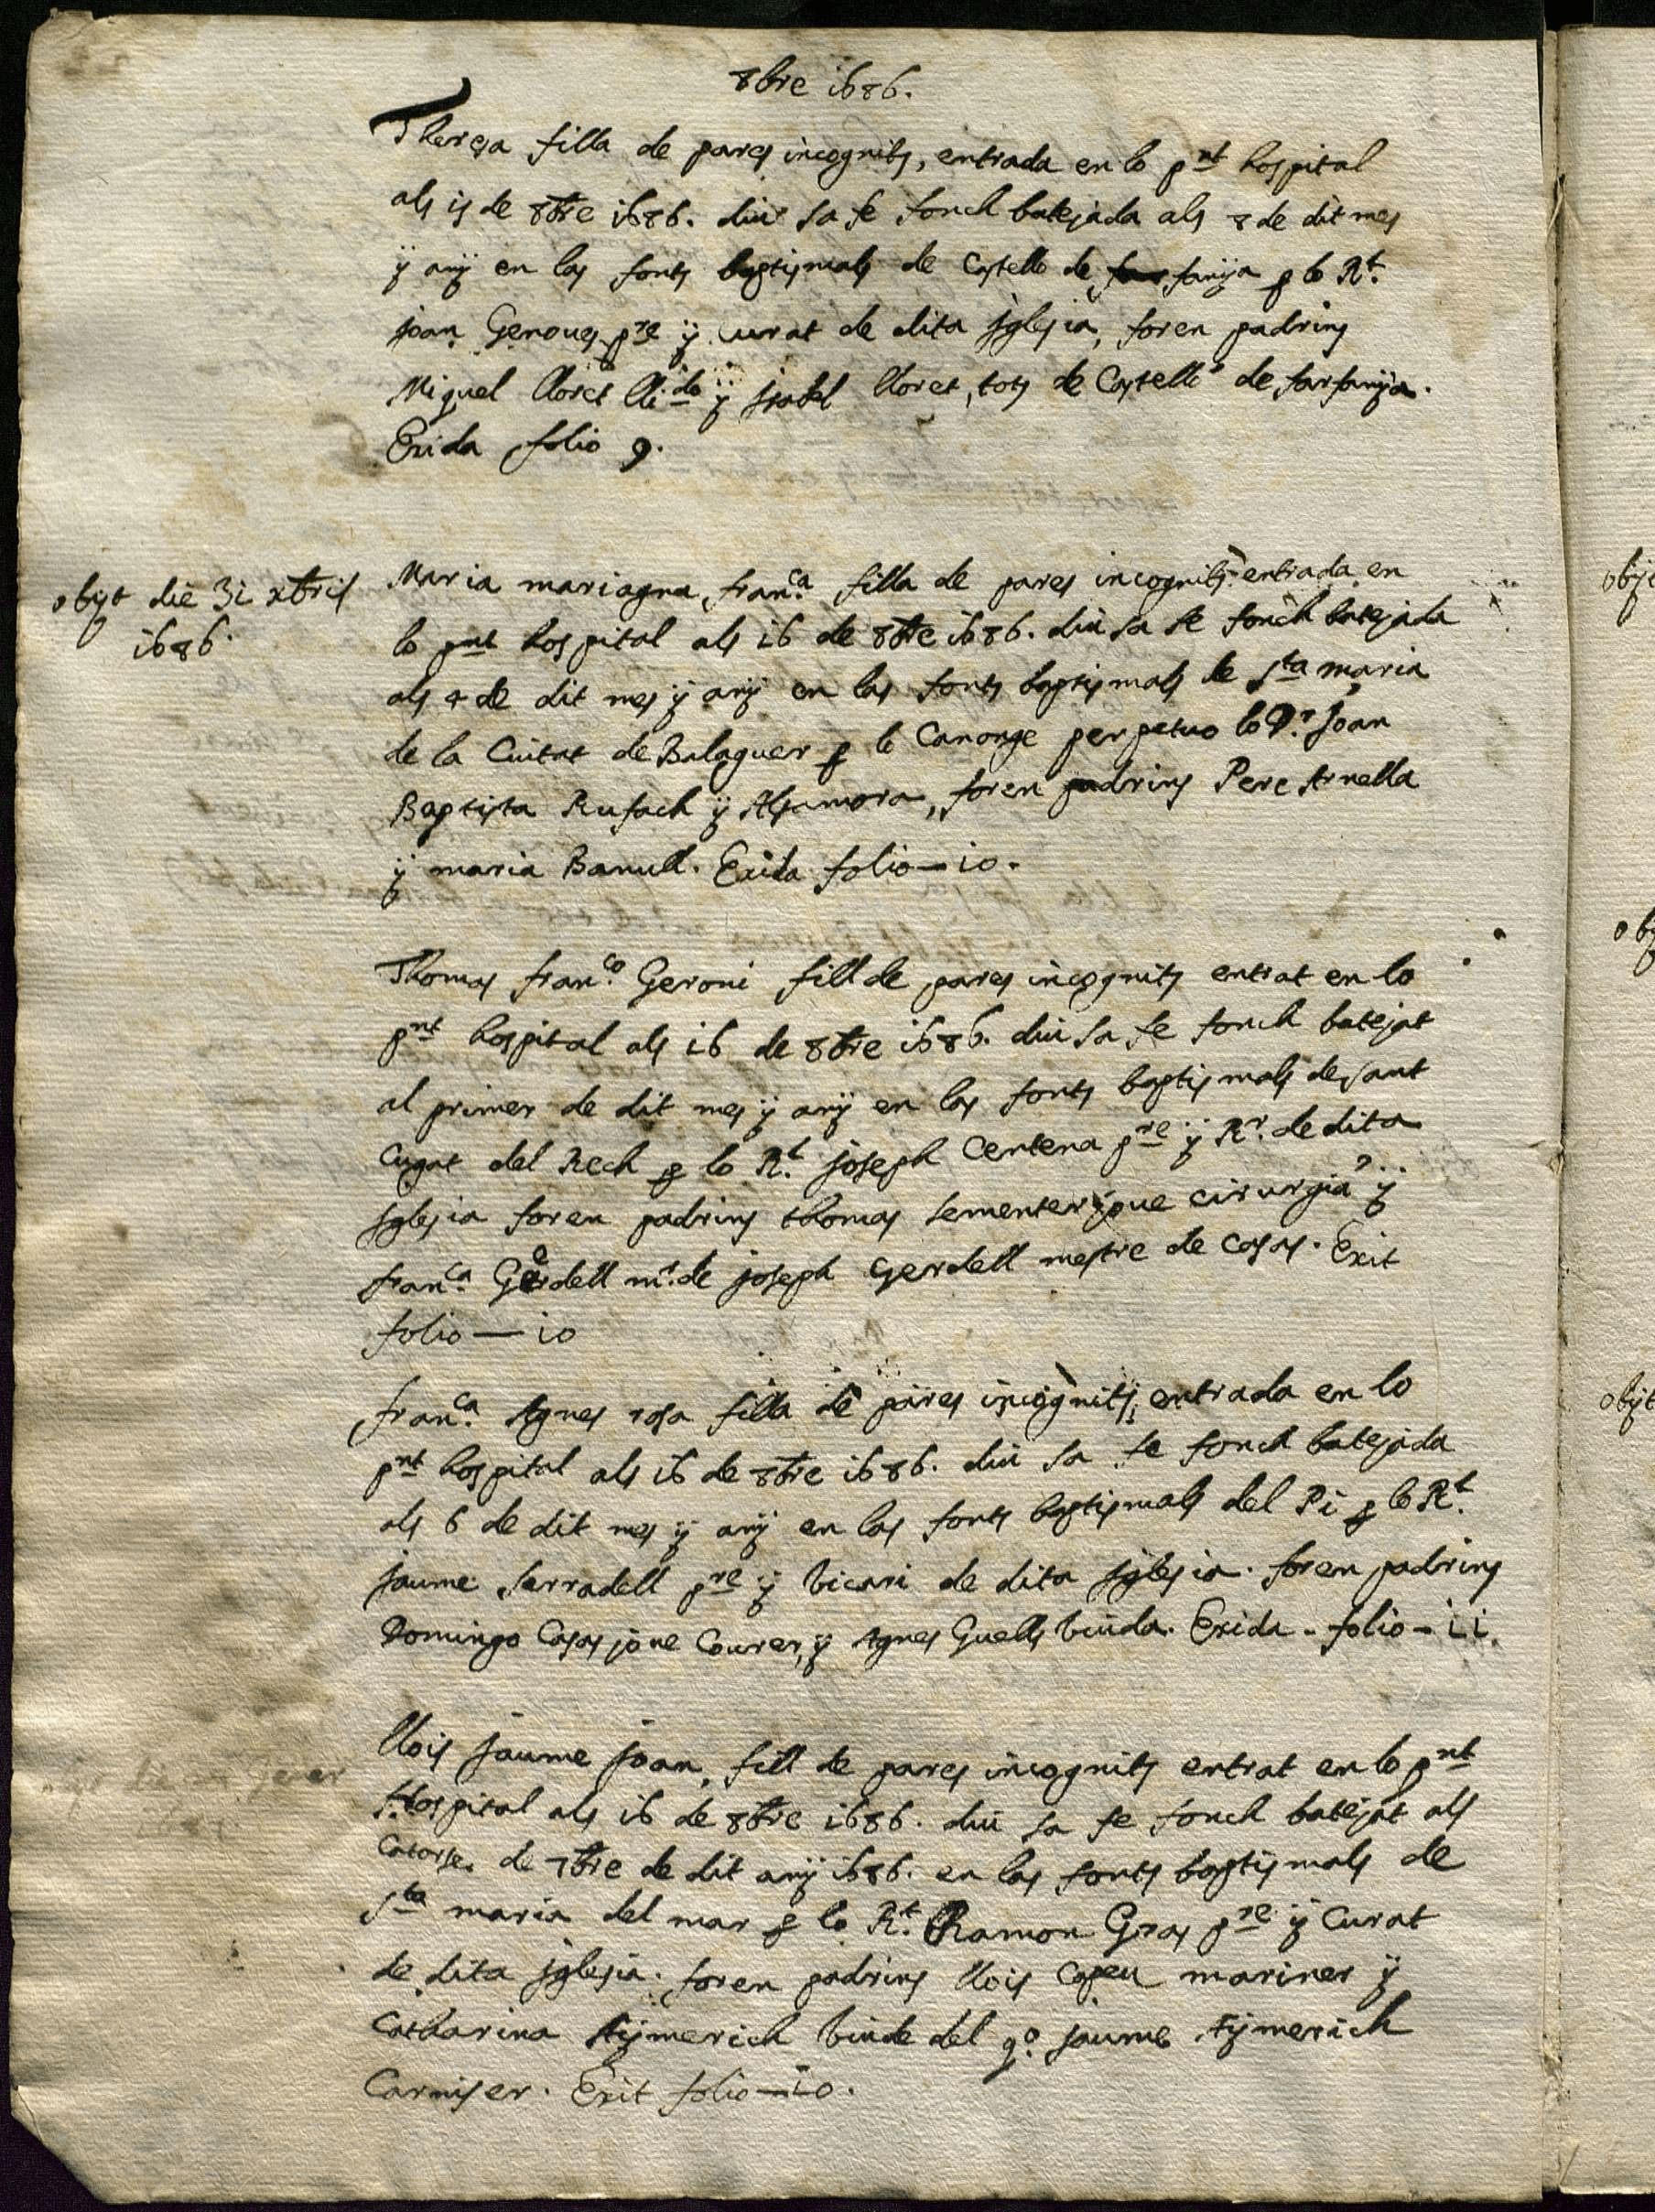 8bre 1686.
Theresa filla de pares incognits, entrada en lo pnt hospital
als 15 de 8bre 1686. diu sa fe fonch batejada als 8 de dit mes
ÿ anÿ en las fonts baptismals de Castello de farfanÿa p lo Rt.
joan Genoves pre ÿ Curat de dita jglesia, foren padrins
Miquel lloret ÿ jsabel lloret, tots de Castello de farfanÿa.
Exida folio 9.
obijt die 31 xbris
1686.
Maria mariagna, franca. filla de pares incognits entrada en
lo pnt hospital als 16 de 8bre 1686. diu sa fe fonch batejada
als 4 de dit mes ÿ anÿ en las fonts baptismals de sta maria
de la Ciutat de Balaguer p lo Canonge perpetuo lo Dr. Joan
Baptista Rufach ÿ Alsamora, foren padrins Pere Arnella
ÿ maria Banull. Exida folio - 10.
Thomas franco. Geroni fill de pares incognits entrat en lo
pnt hospital als 16 de 8bre 1686. diu sa fe fonch batejat
al primer de dit mes ÿ anÿ en las fonts baptismals de sant
Cugat del Rech p lo Rt. joseph Centena pre ÿ Rr. de dita
jglesia foren padrins thomas sementer jove cirurgia ÿ
franca. Gerdell mr. de joseph Gerdell mestre de casas. Exit
folio - 10
franca. Agnes rosa filla de pares incognits, entrada en lo
pnt hospital als 16 de 8bre 1686. diu sa fe fonch batejada
als 6 de dit mes ÿ anÿ en las fonts baptismals del Pi p lo Rt.
jaume serradell pre ÿ vicari de dita jglesia. foren padrins
Domingo Casas jove Courer, ÿ Agnes Guells viuda. Exida - folio - 11.
Gener
llois jaume joan, fill de pares incognits entrat en lo pnt
Hospital als 16 de 8bre 1686. diu sa fe fonch batejat als
Catorse de 7bre de dit anÿ 1686. en las fonts baptismals de
sta maria del mar p lo Rt. Ramon Gras pre ÿ Curat
de dita jglesia. foren padrins llois Capeu mariner ÿ
Catharina Aÿmerich viude del qo. jaume Aÿmerich
Carniser. Exit folio - 10.